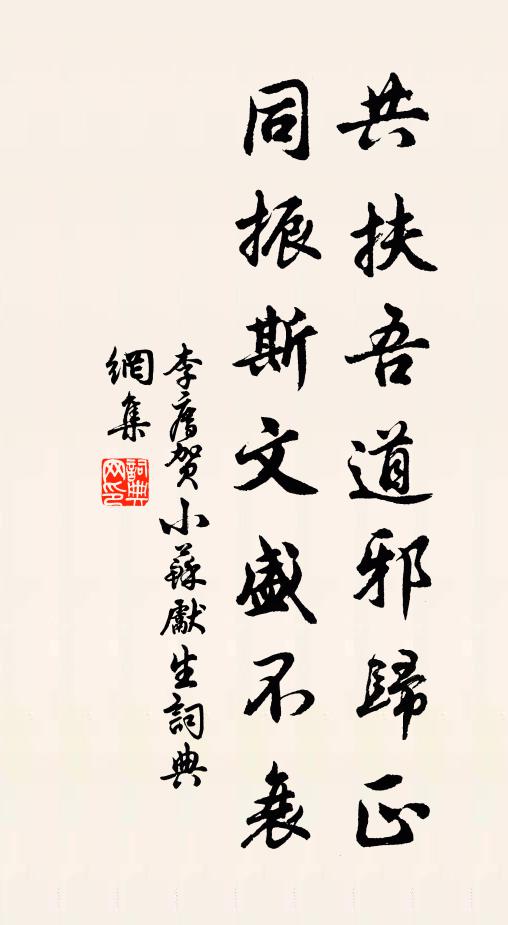 共扶吾道邪歸正
同振斯文盛不衰
李廌賀小蘇獻生詞典
網集
詞典
網印